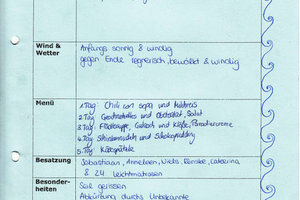 Wind & Wetter
Anfangs sonnig & windig
gegen Ende regnerisch, bewölkt & windig
Menü
1.Tag Chili con soya und Kaltreis
2.Tag und Obstsalat, Salat
3.Tag und Klöße,
4.Tag und Schokopudding
5.Tag Käsespätzle
Besatzung
Sebastiaan, Anneleen, Niels, Renske, Caterina
& 24 Leichtmatrosen
Besonder-
heiten
Seil gerissen
Abkürzung durchs Unbekannte